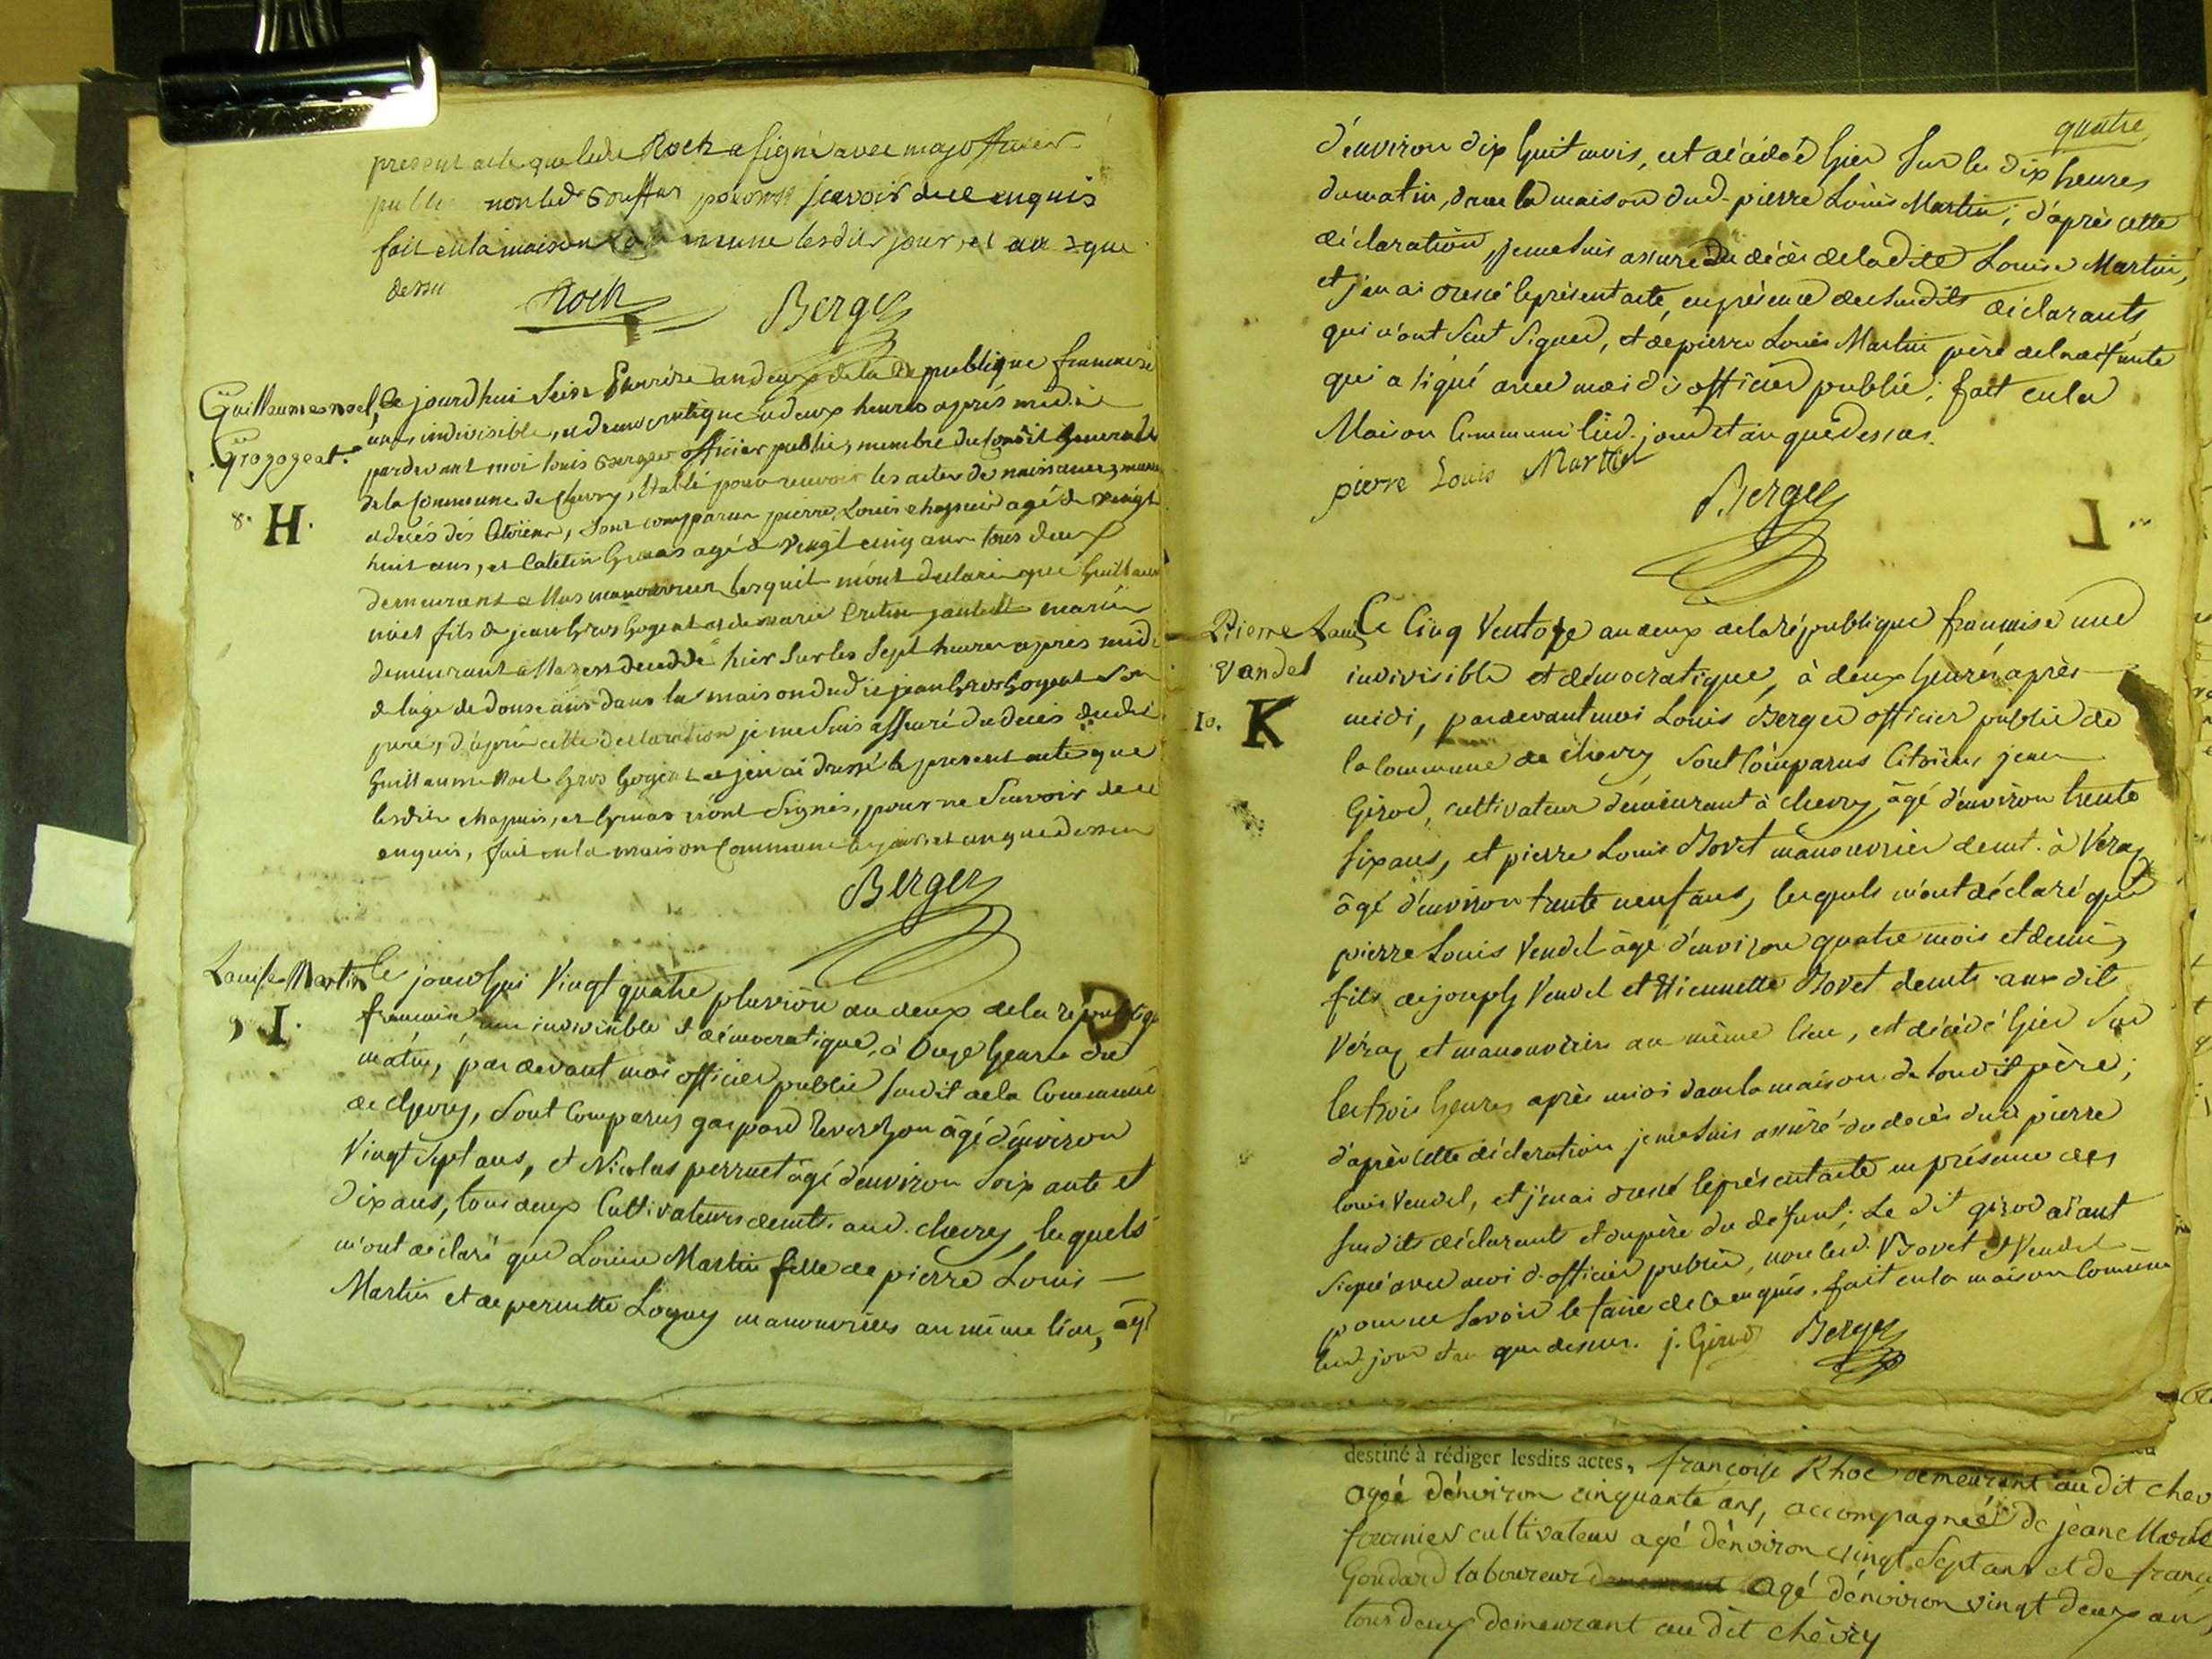 present acte que ledit Roch a signé avec moy officier
public non led Gouffas pour ne scavoir de ce enquis
fait en la maison commune lesdits jour, et an que
dessu
Roch Berger
Guillaume noel
Grozogeat.
8. H.
Ce jourdhui seize Pluviose an deux de la Republique francaise
une, indivisible, et democratique a deux heures aprés midi
pardevant moi Louis Berger officier public, membre du Conseil General
de la Commune de Chevry, établi pour recevoir les actes de naissances, mar
et décés des Citoïens, sont comparus pierre Louis chapuis agé de vingt
huit ans, et Catelin Grenas agé de vingt cinq ans tous deux
demeurans a Mas manouvrier lesquels m'ont declaré que Guillaume
noel fils de jean Gros Gogeat et de marie
demeurant a est decedé hier sur les sept heures apres midi
de lage de douse ans dans la maison dudit jean Gros Gogeat son
pere, d'aprés cette declaration je me suis assuré du decés dudit
Guillaume Noel Gros Gogeat et j'en ai dressé le present acte que
lesdits chapuis, et Grenas n'ont signés, pour ne scavoir de ce
enquis, fait en la maison Commune les jour, et an que dessus
Berger
Louise Martin
9 I.
Ce jourdhui vingt quatre pluviôse an deux de la république
francaise une indivisible et démocratique, à onze heures du
matin, par devant moi officier public susdit de la Commune
de chevry, sont comparus gaspard Reverchon âgé d'environ
vingt sept ans, et Nicolas perruet âgé d'environ soixante et
dix ans, tous deux Cultivateurs demts. aud. chevry, lesquels
m'ont déclaré que Louise Martin fille de pierre Louis —
Martin et de pernette Logny manouvriers au même lieu, agé
quatre
d'environ dix huit mois, est décédée hier sur les dix heures
du matin, dans la maison dud. pierre Louis Martin; d'après cette
déclaration, je me suis assuré du décès de la dite Louise Martin,
et j'en ai dressé le présent acte, en présence des susdits déclarants
qui n'ont sçut signer, et de pierre Louis Martin père de la défunte
qui a signé avec moi di officier public; fait en la
Maison Commune lesd. jour et an que dessus.
pierre Louis Martin
Berger
Pierre Louis
Vandel
10. K
Ce Cinq Ventose an deux de la république francaise une
indivisible et démocratique, à deux heures après
midi, pardevant moi Louis Berger officier public de
la Commune de chevry sont Comparus Citoïens jean
Girod, cultivateur demeurant à chevry, âgé d'environ trente
six ans, et pierre Louis Bovet manouvrier demt. à Véraz
âgé d'environ trente neuf ans, lesquels m'ont déclaré que
pierre Louis Vendel âgé d'environ quatre mois et demi,
fils de joseph Vendel et Etiennette Bovet demts. aux dit
Véraz et manouvriers au même lieu, est décédé hier sur
les trois heures après midi dans la maison de son dit père;
d'après cette déclaration je me suis assûré du décès dud pierre
louis Vendel, et j'en ai dressé le présent acte en présence des
susdits déclarants et du père du défunt; Le dit girod aïant
signé avec moi d. officier public, non lesd. Bovet et Vendel
pour ne savoir le faire de ce enquis. fait en la maison Commune
lesd jour et an que dessus. j. Girod Berger
destiné à rédiger lesdits actes, françoise Rhoc demeurant au dit chev
agéé dénviron cinquante ans, accompagnéé de jeane Marie
fournier cultivateur agé dénviron vingt Sept ans et de franç
Goudard laboureur agé dénviron vingt deux an,
tous deux demeurant au dit chèvry